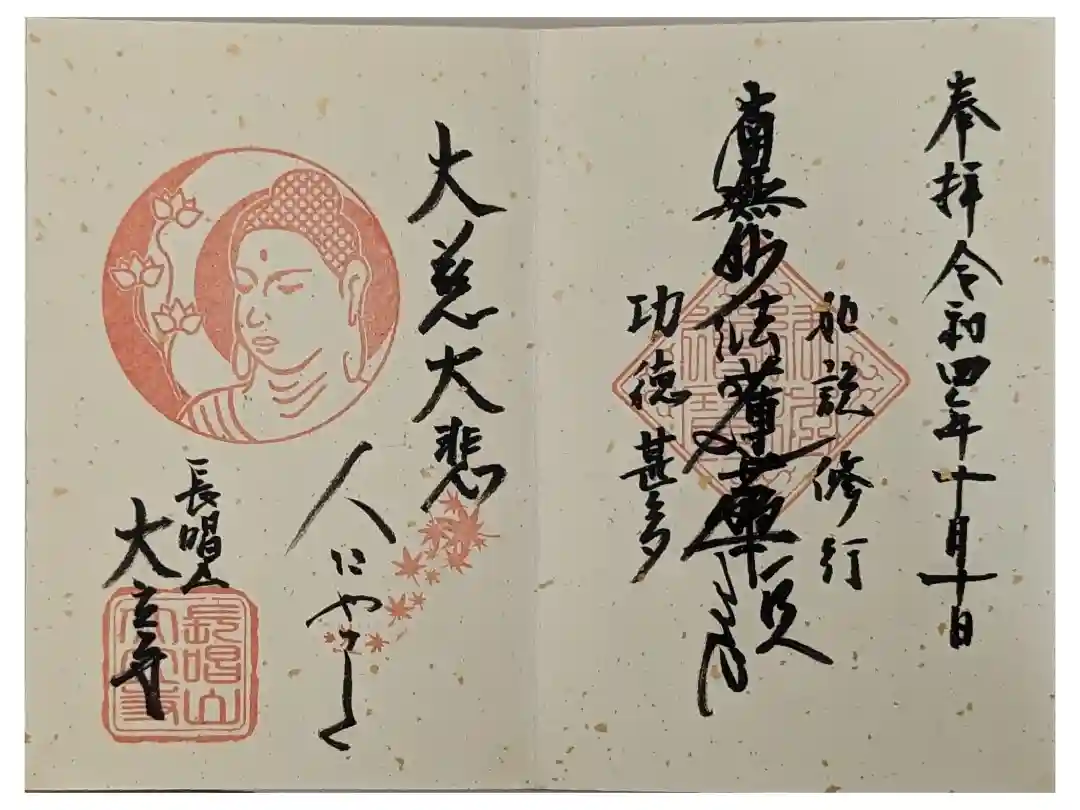 奉拝 令和四年十月十日
如説修行
南無妙法蓮華経
功徳甚多
大慈大悲
人にやさしく
長唱山
大立寺
長唱山
大立寺